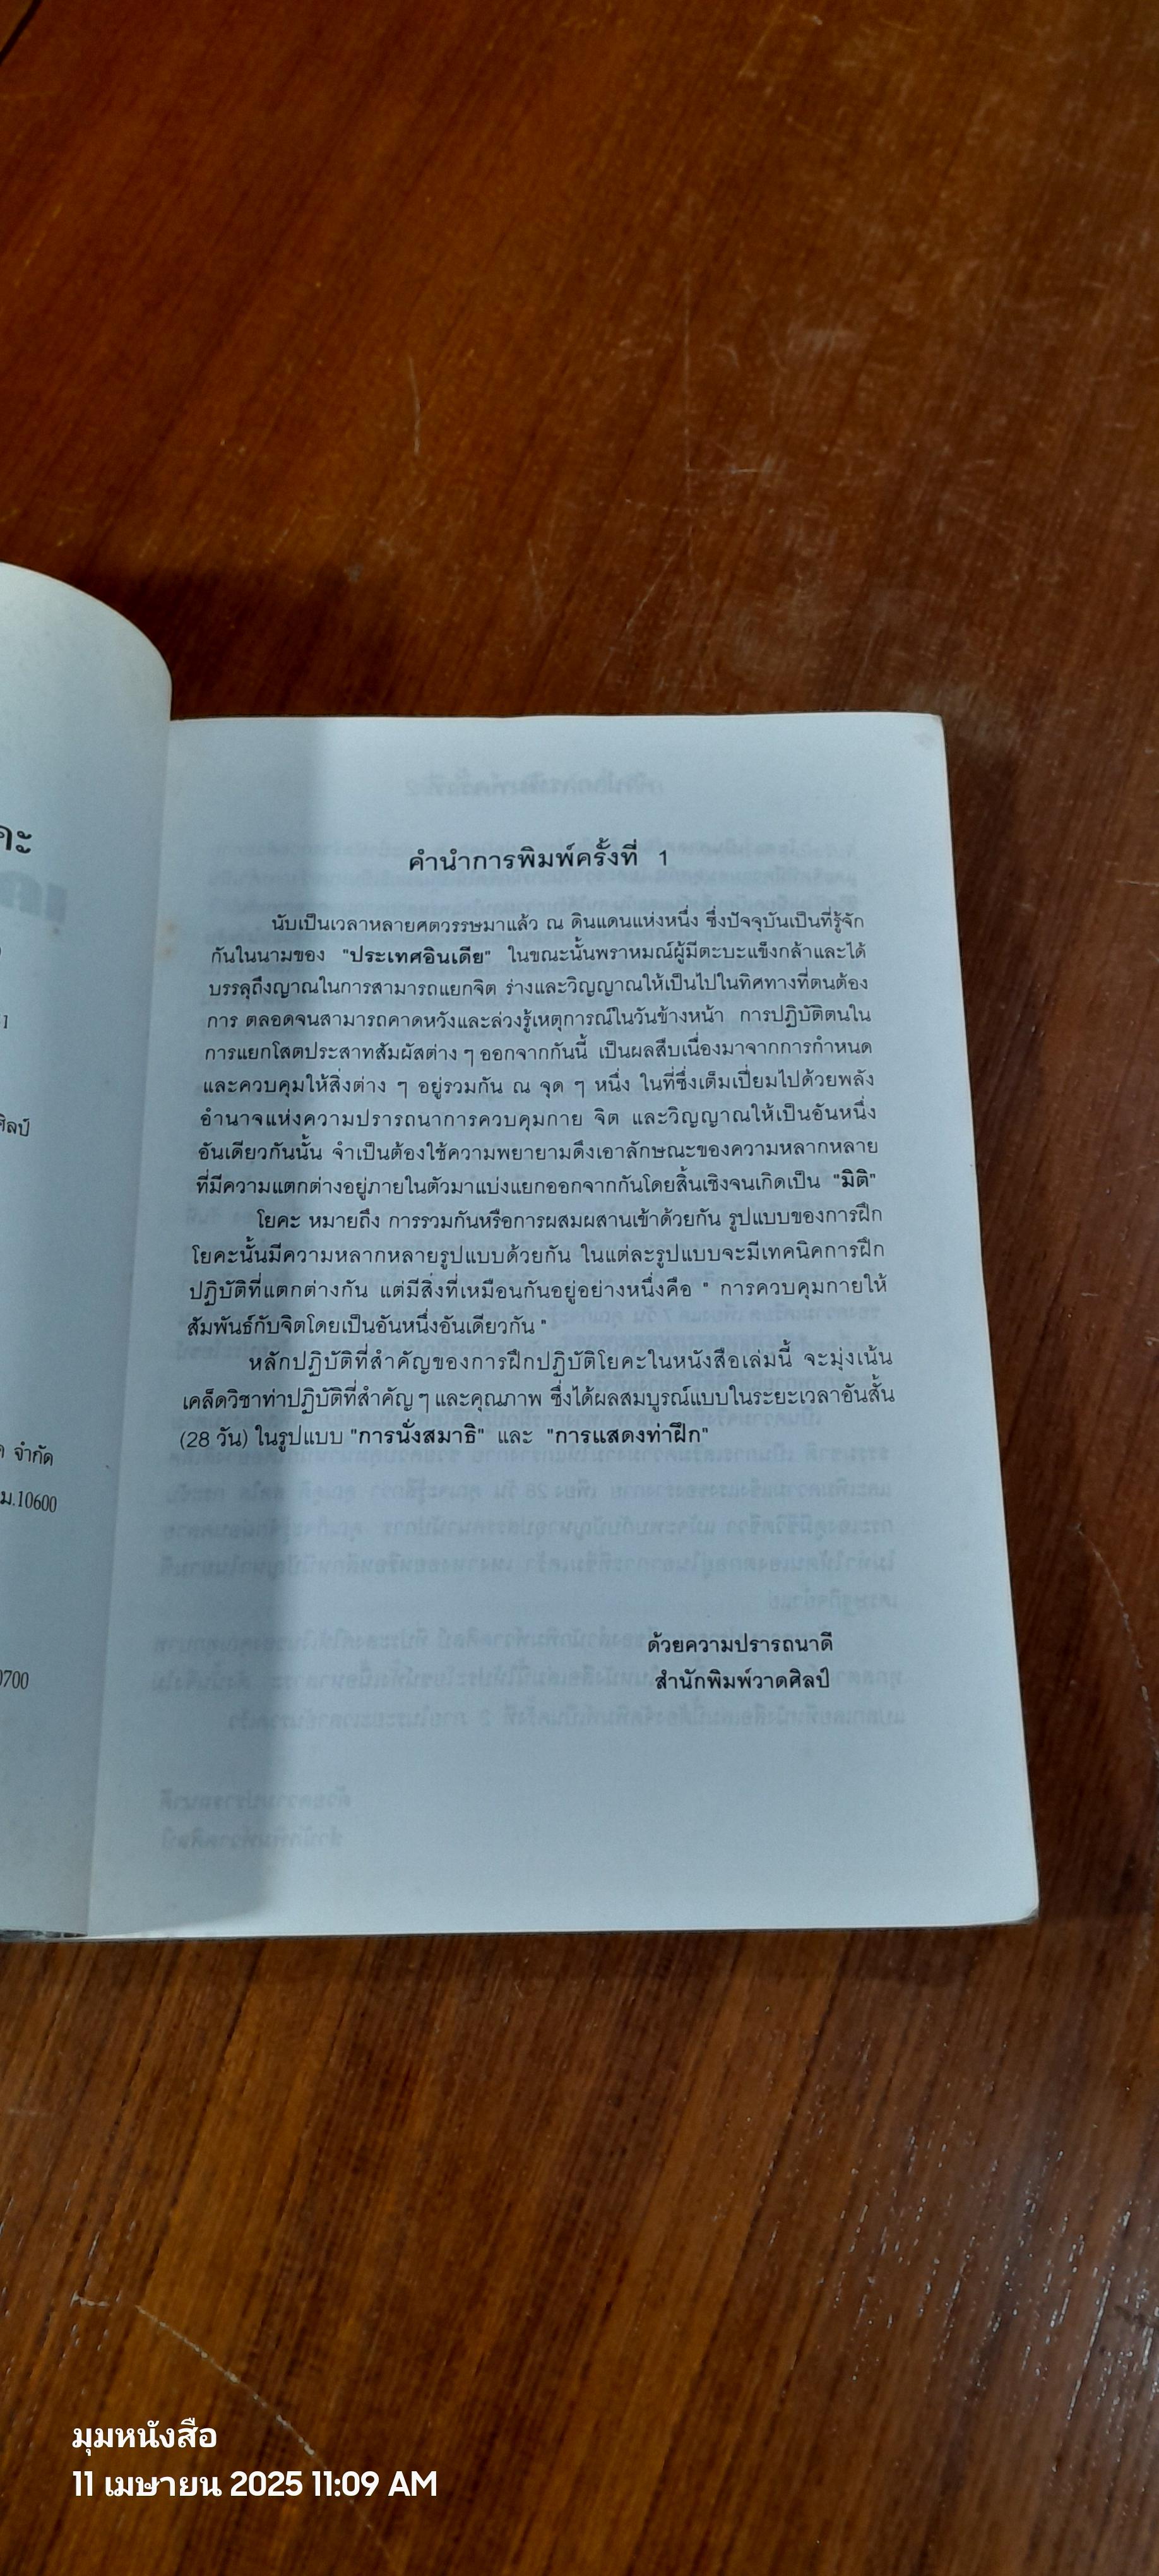 คะ
1
ศิลป์
จำกัด
ม.10600
0700
คำนำการพิมพ์ครั้งที่ 1
นับเป็นเวลาหลายศตวรรษมาแล้ว ณ ดินแดนแห่งหนึ่ง ซึ่งปัจจุบันเป็นที่รู้จัก
กันในนามของ "ประเทศอินเดีย" ในขณะนั้นพราหมณ์ผู้มีตะบะแข็งกล้าและได้
บรรลุถึงญาณในการสามารถแยกจิต ร่างและวิญญาณให้เป็นไปในทิศทางที่ตนต้อง
การ ตลอดจนสามารถคาดหวังและล่วงรู้เหตุการณ์ในวันข้างหน้า การปฏิบัติตนใน
การแยกโสตประสาทสัมผัสต่าง ๆ ออกจากกันนี้ เป็นผลสืบเนื่องมาจากการกำหนด
และควบคุมให้สิ่งต่าง ๆ อยู่รวมกัน ณ จุด ๆ หนึ่ง ในที่ซึ่งเต็มเปี่ยมไปด้วยพลัง
อำนาจแห่งความปรารถนาการควบคุมกาย จิต และวิญญาณให้เป็นอันหนึ่ง
อันเดียวกันนั้น จำเป็นต้องใช้ความพยายามดึงเอาลักษณะของความหลากหลาย
ที่มีความแตกต่างอยู่ภายในตัวมาแบ่งแยกออกจากกันโดยสิ้นเชิงจนเกิดเป็น "มิติ"
โยคะ หมายถึง การรวมกันหรือการผสมผสานเข้าด้วยกัน รูปแบบของการฝึก
โยคะนั้นมีความหลากหลายรูปแบบด้วยกัน ในแต่ละรูปแบบจะมีเทคนิคการฝึก
ปฏิบัติที่แตกต่างกัน แต่มีสิ่งที่เหมือนกันอยู่อย่างหนึ่งคือ " การควบคุมกายให้
สัมพันธ์กับจิตโดยเป็นอันหนึ่งอันเดียวกัน "
หลักปฏิบัติที่สำคัญของการฝึกปฏิบัติโยคะในหนังสือเล่มนี้ จะมุ่งเน้น
เคล็ดวิชาท่าปฏิบัติที่สำคัญ ๆ และคุณภาพ ซึ่งได้ผลสมบูรณ์แบบในระยะเวลาอันสั้น
(28 วัน) ในรูปแบบ "การนั่งสมาธิ" และ "การแสดงท่าฝึก"
ด้วยความปรารถนาดี
สำนักพิมพ์วาดศิลป์
มุมหนังสือ
11 เมษายน 2025 11:09 AM